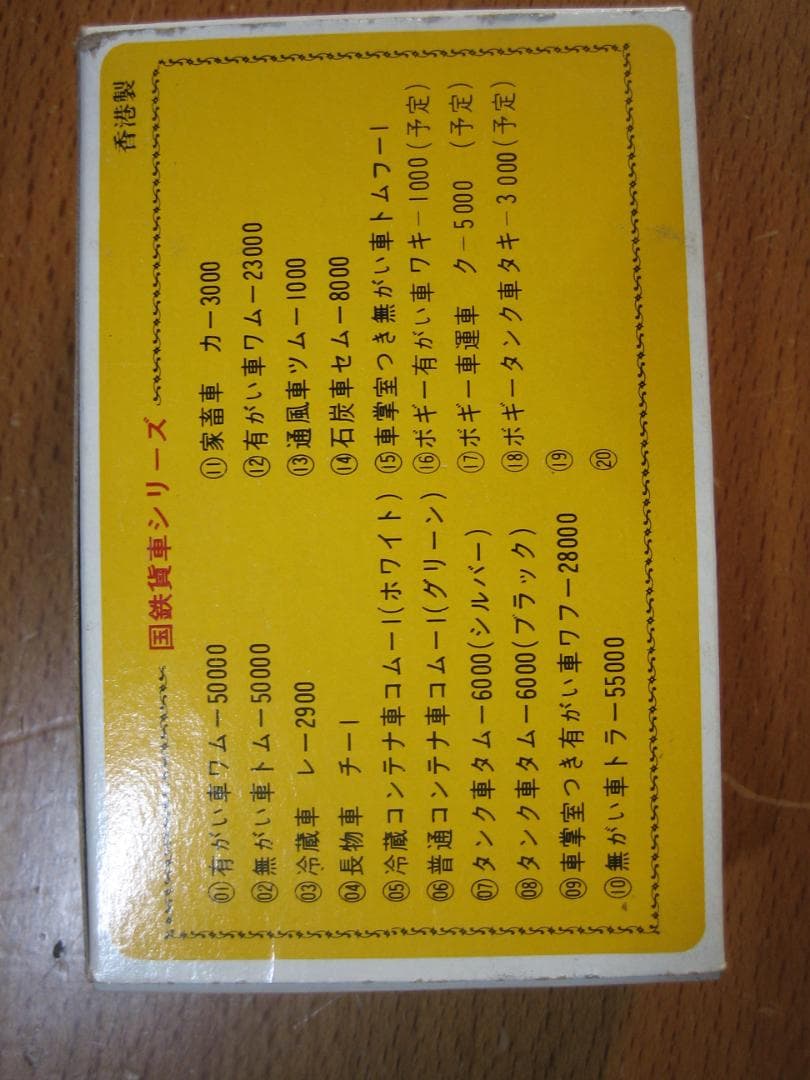 香港製
国鉄貨車シリーズ
01 有がい車ワムー50000
02 無がい車トムー50000
03 冷蔵車 レー2900
04 長物車 チー1
05 冷蔵コンテナ車コムー1(ホワイト)
06 普通コンテナ車コムー1(グリーン)
07 タンク車タムー6000(シルバー)
08 タンク車タムー6000(ブラック)
09 車掌室つき有がい車ワフー28000
10 無がい車トラー55000
11 家畜車 カー3000
12 有がい車ワムー23000
13 通風車ツムー1000
14 石炭車セムー8000
15 車掌室つき無がい車トムフー1
16 ボギー有がい車ワキー1000(予定)
17 ボギー車運車 クー5000 (予定)
18 ボギータンク車タキー3000(予定)
19
20